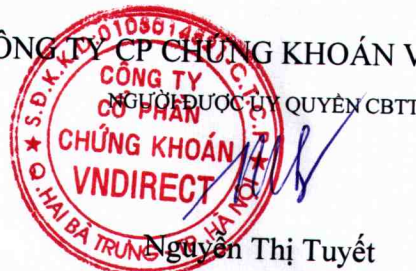 CÔNG TY CP CHỨNG KHOÁN V
NGƯỜI ĐƯỢC ỦY QUYỀN CBTT
CÔNG TY
CỔ PHẦN
CHỨNG KHOÁN
VNDIRECT
Q. HAI BÀ TRƯNG
Nguyễn Thị Tuyết